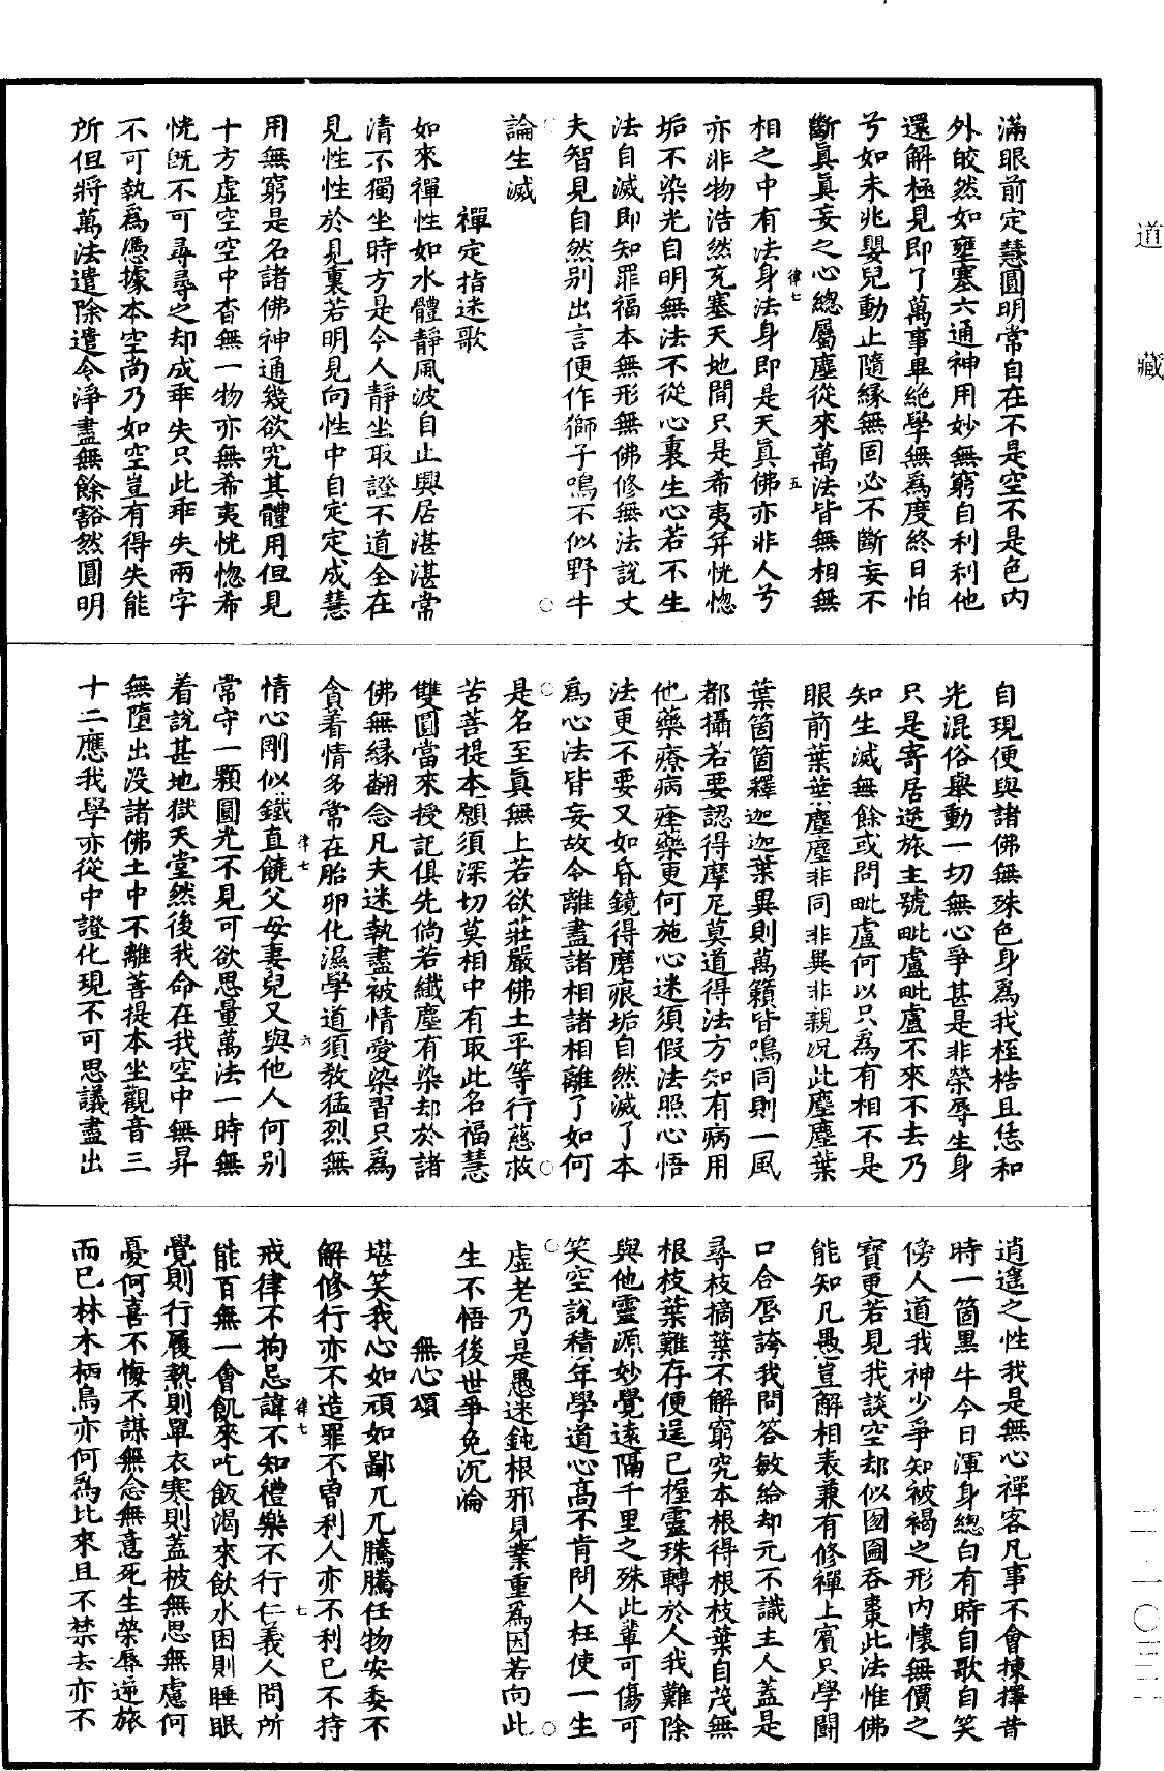 道藏
滿眼前定慧圓明常自在不是空不是色内
外皎然如壅塞六通神用妙無窮自利利他
還解極見即了萬事畢絶學無爲度終日怕
兮如未兆嬰兒動止隨緣無固必不斷妄不
斷真真妄之心總屬塵從來萬法皆無相無
律七
五
相之中有法身法身即是天真佛亦非人兮
亦非物浩然充塞天地間只是希夷并恍惚
垢不染光自明無法不從心裏生心若不生
法自滅即知罪福本無形無佛修無法說丈
夫智見自然别出言便作獅子鳴不似野牛
論生滅
禪定指迷歌
如來禪性如水體靜風波自止興居湛湛常
清不獨坐時方是今人靜坐取證不道全在
見性性於見裏若明見向性中自定定成慧
用無窮是名諸佛神通幾欲究其體用但見
十方虛空空中杳無一物亦無希夷恍惚希
恍既不可尋尋之却成乖失只此乖失兩字
不可執爲憑據本空尚乃如空豈有得失能
所但將萬法遣除遣令淨盡無餘豁然圓明
自現便與諸佛無殊色身爲我桎梏且恁和
光混俗舉動一切無心爭甚是非榮辱生身
只是寄居逆旅主號毗盧毗盧不來不去乃
知生滅無餘或問毗盧何以只爲有相不是
眼前葉葉塵塵非同非異非親况此塵塵葉
葉箇箇釋迦迦葉異則萬籟皆鳴同則一風
都攝若要認得摩尼莫道得法方知有病用
他藥療病痊藥更何施心迷須假法照心悟
法更不要又如昏鏡得磨痕垢自然滅了本
爲心法皆妄故令離盡諸相諸相離了如何
是名至真無上若欲莊嚴佛土平等行慈救
苦菩提本願須深切莫相中有取此名福慧
雙圓當來授記俱先倘若纖塵有染却於諸
佛無緣翻念凡夫迷執盡被情愛染習只爲
貪着情多常在胎卵化濕學道須教猛烈無
律七
六
情心剛似鐵直饒父母妻兒又與他人何别
常守一顆圓光不見可欲思量萬法一時無
着說甚地獄天堂然後我命在我空中無昇
無墮出没諸佛土中不離菩提本坐觀音三
十二應我學亦從中證化現不可思議盡出
逍遥之性我是無心禪客凡事不會揀擇昔
時一箇黒牛今日渾身總白有時自歌自笑
傍人道我神少爭知被褐之形内懷無價之
寶更若見我談空却似囫圇吞棗此法惟佛
能知凡愚豈解相表兼有修禪上賓只學鬭
口合唇誇我問答敏給却元不識主人蓋是
尋枝摘葉不解窮究本根得根枝葉自茂無
根枝葉難存便逞已握靈珠轉於人我難除
與他靈源妙覺遠隔千里之殊此輩可傷可
笑空說積年學道心高不肯問人枉使一生
虛老乃是愚迷鈍根邪見業重爲因若向此
生不悟後世爭免沉淪
無心頌
堪笑我心如頑如鄙兀兀騰騰任物安委不
解修行亦不造罪不曾利人亦不利己不持
律七
七
戒律不拘忌諱不知禮樂不行仁義人間所
能百無一會飢來吃飯渴來飲水困則睡眠
覺則行履熱則單衣寒則蓋被無思無慮何
憂何喜不悔不謀無念無意死生榮辱逆旅
而已林木栖鳥亦何爲比來且不禁去亦不